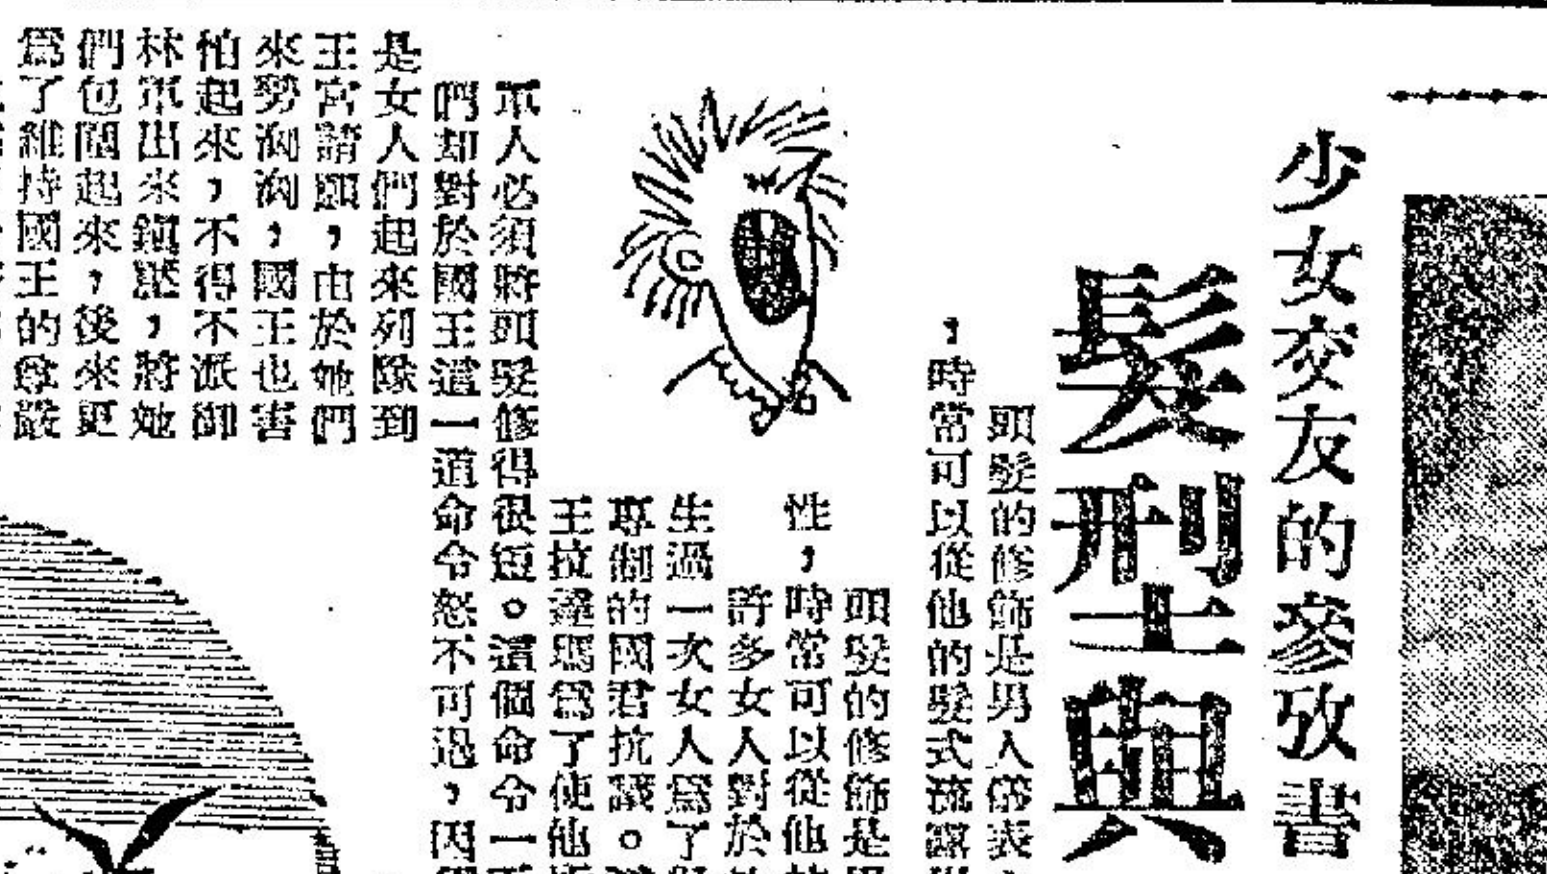 少女交友的參攷書
髮型與
頭髮的修飾是男人儀表
，時常可以從他的髮式流露
頭髮的修飾是
性，時常可以從他
許多女人對於
生過一次女人爲了
專制的國君抗議。
王拉薩瑪爲了使他
軍人必須將頭髮修得很短。這個命令一
們却對於國王這一道命令怒不可遏，因
是女人們起來列隊到
王宮請願，由於她們
來勢洶洶，國王也害
怕起來，不得不派御
林軍出來鎭壓，將她
們包圍起來，後來更
爲了維持國王的尊嚴